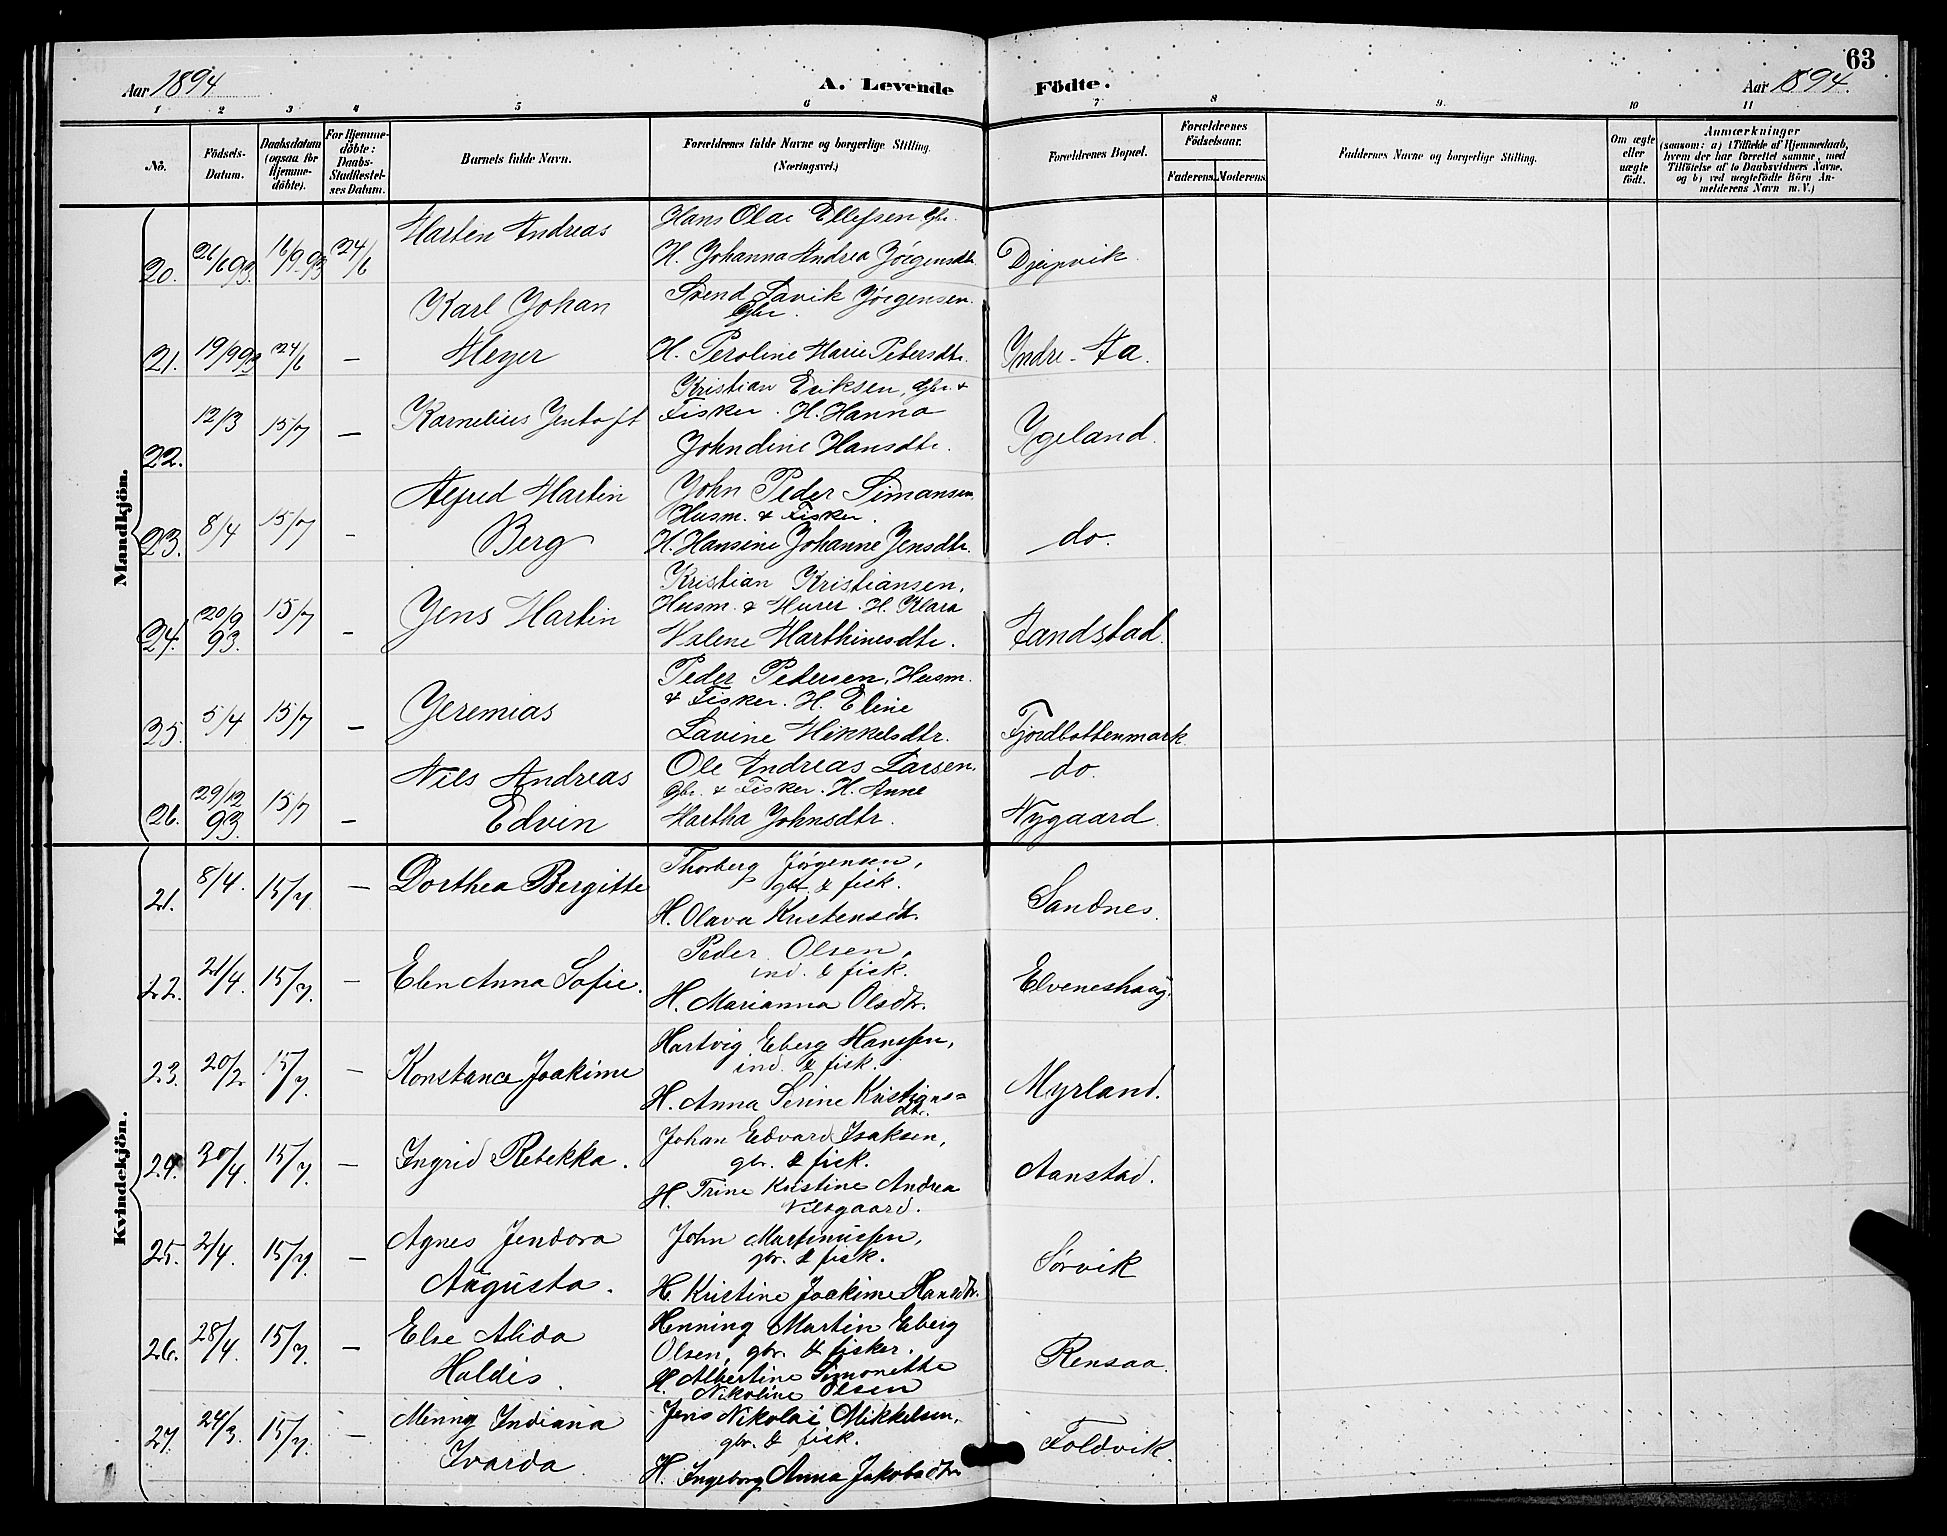 63
Aar 1894
A. Levende Födte.
Aar 1894.
1 2 3 4 5 6 7 8 9. 10 11
No.
Födsels-Datum.
Daabsdatum (ogsaa for Hjemmedöbte).
For Hjemmedöbte: Daabs-Stadfæstelses Datum.
Barnets fulde Navn.
Forældrenes fulde Navne og borgerlige Stilling. (Næringsvei.)
Forældrenes Bopæl.
Forældrenes Födselsaar.
Faderens. Moderens.
Faddernes Navne og borgerlige Stilling.
Om ægte eller uægte födt.
Anmærkninger
(saasom: a) i Tilfælde af Hjemmedaab, hvem der har forrettet samme, med Tilföielse af to Daabsvidners Navne, og b) ved uægtefödte Börn Anmelderens Navn m. V.)
Mandkjön.
20. 26/6 93. 16/9 93 24/6 Martin Andreas Hans Olai Ellefsen Gbr.
H. Johanna Andrea Jörgensdtr. Djupvik
21. 19/9 93 24/6 — Karl Johan Meyer Svend Lavik Jörgensen Gbr.
H. Peroline Marie Petersdtr. Indre-Aa.
22. 12/3 15/7 — Kornelius Jentoft Kristian Eriksen, Gbr. &
Fisker. H. Hanna
Johndine Hansdtr. Ygeland.
23. 8/4 15/7 — Alfred Martin Berg John Peder Simonsen
Husm. & Fisker.
H. Hansine Johanne Jensdtr. do.
24. 20/9 93. 15/7 — Jens Martin Kristian Kristiansen,
Husm. & Murer. H. Klara
Valene Marthinesdtr. Aandstad.
25. 5/4 15/7 — Jeremias Peder Pedersen, Husm.
& Fisker. H. Eline
Lavine Mikkelsdtr. Fjordbottenmark
26. 29/12 93. 15/7 — Nils Andreas Edvin Ole Andreas Larsen,
Gbr. & Fisker. H. Anne
Martha Johnsdtr. do. Nygaard
Kvindekjön.
21. 8/4. 15/7. — Dorthea Bergitte Thorberg Jörgensen,
gbr. & fisk.
H. Olava Kristensdt. Sandnes.
22. 21/4. 15/7. — Elen Anna Sofie. Peder Olsen,
ind. & fisk.
H. Marianna Olsdtr. Elveneshaug.
23. 20/2 15/7 — Konstance Joakime Hartvig Eberg Hanssen,
ind. & fisk.
H. Anna Serine Kristians=
dtr. Myrland.
24. 30/4. 15/7. — Ingrid Rebekka. Johan Edvard Isaksen,
gbr. & fisk.
H. Trine Kristine Andrea
Nilsgaard. Aanstad.
25. 2/4. 15/7. — Agnes Jendora Augusta. John Martinussen,
gbr. & fisk.
H. Kristine Joakime Hansdtr. Sørvik
26. 28/4. 15/7. — Else Alida Haldis. Henning Martin Eberg
Olsen, gbr. & fisker.
H. Albertine Simonette
Nikoline Olsen Rensaa.
27. 24/3. 15/7. — Menny Indiana Ivarda. Jens Nikolai Mikkelsen,
gbr. & fisk.
H. Ingeborg Anna Jakobsdtr. Foldvik.